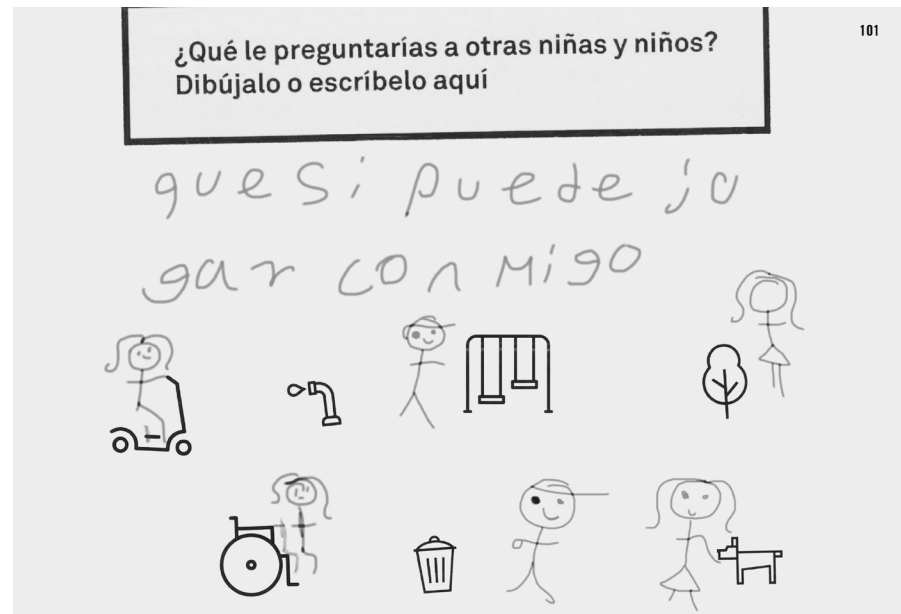 101
¿Qué le preguntarías a otras niñas y niños?
Dibújalo o escríbelo aquí
que si puede ju
gar con migo